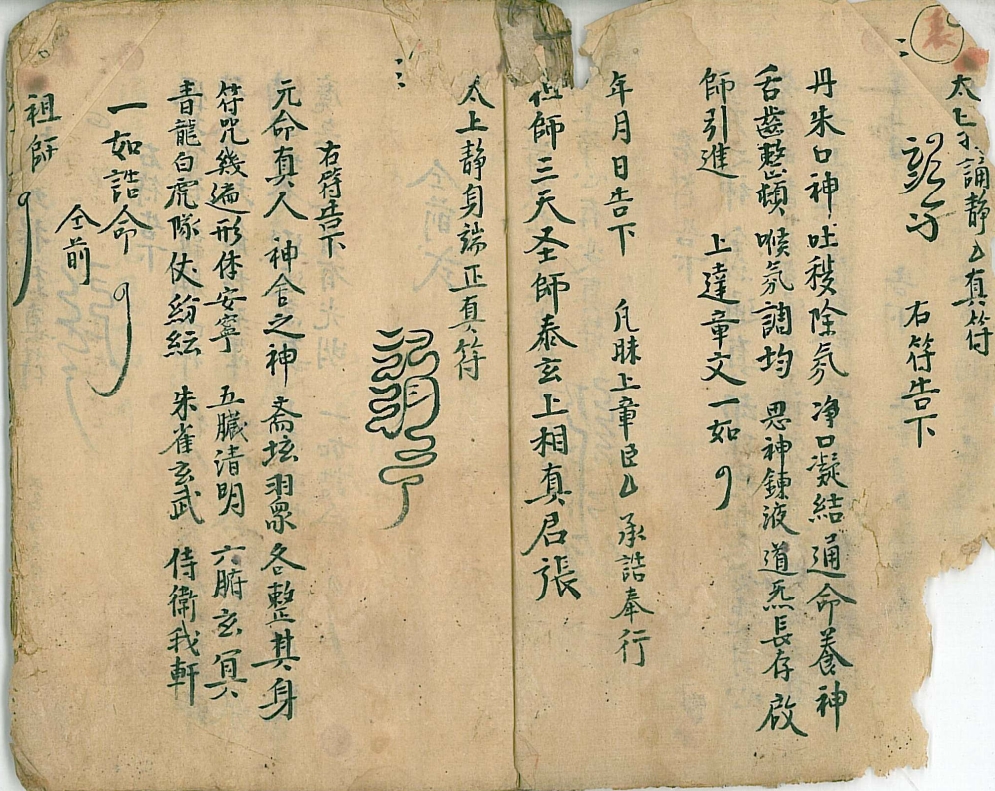 太上
誦静口真符
右符告下
丹朱口神 吐穢除氛 净口凝結 通命養神
舌齒整頓 喉氛調均 思神鍊液 道炁長存 啟
師引進 上達章文 一如
年月日告下 凡昧上章臣厶承誥奉行
師三天圣師泰玄上相真君張
太上静身端正真符
右符告下
元命真人 神舍之神 斋坛羽眾 各整其身
符咒幾遍 形体安寧 五臟清明 六腑玄真
青龍白虎 隊仗紛紜 朱雀玄武 侍衛我軒
一如誥命
仝前
祖師